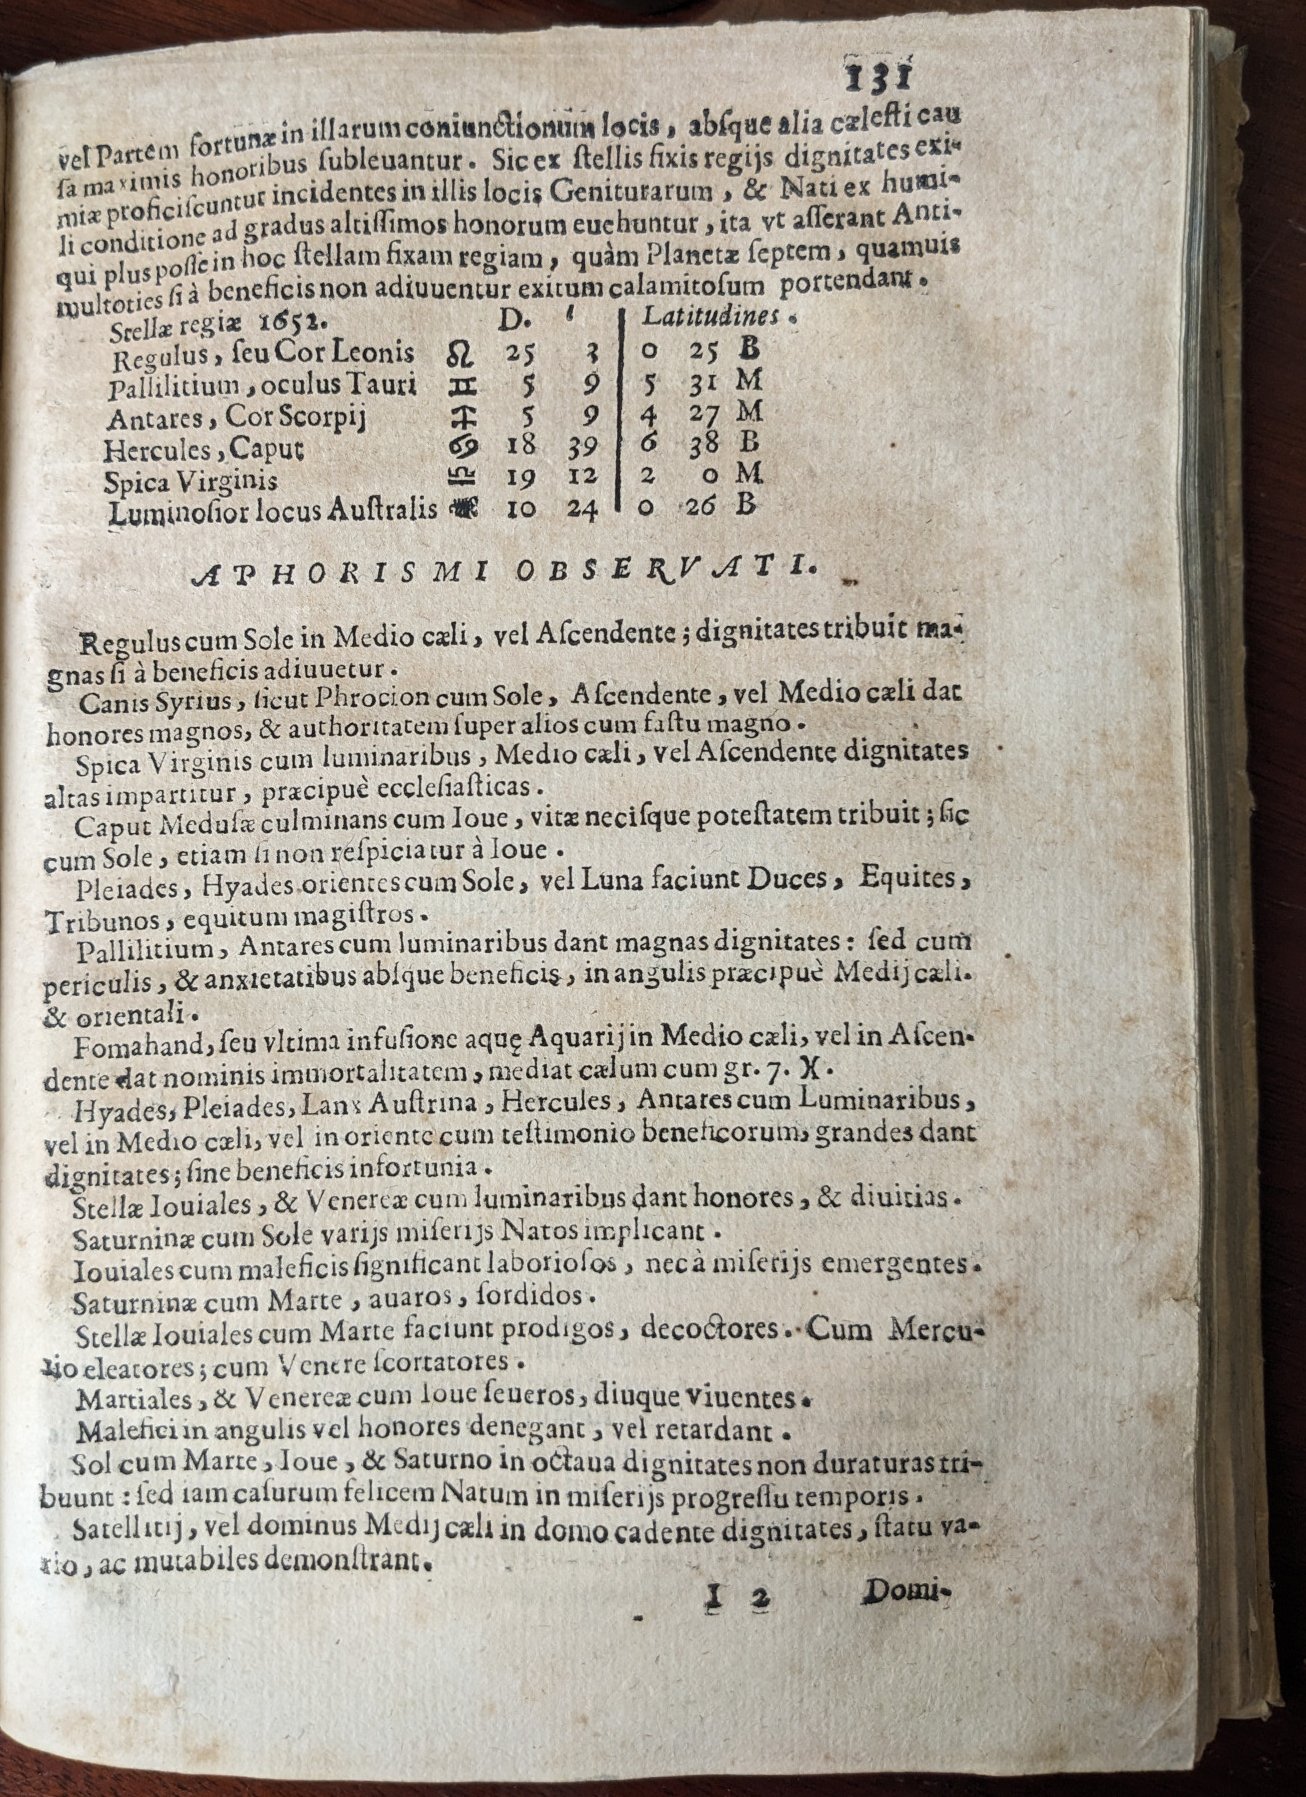 131
vel Partem fortunæ in illarum coniunctionum locis, absque alia cælesti cau
sa maximis honoribus subleuantur. Sic ex stellis fixis regijs dignitates exi-
miæ proficiscuntur incidentes in illis locis Geniturarum, & Nati ex humi-
li conditione ad gradus altissimos honorum euehuntur, ita vt asserant Anti-
qui plus posse in hoc stellam fixam regiam, quàm Planetæ septem, quamuis
multoties si à beneficis non adiuuentur exitum calamitosum portendant.
Stellæ regiæ 1652. D. ' Latitudines.
Regulus, seu Cor Leonis ♌ 25 3 0 25 B
Pallilitium, oculus Tauri ♊ 5 9 5 31 M
Antares, Cor Scorpij ♐ 5 9 4 27 M
Hercules, Caput ♋ 18 39 6 38 B
Spica Virginis ♎ 19 12 2 0 M
Luminosior locus Australis 10 24 0 26 B
APHORISMI OBSERVATI.
Regulus cum Sole in Medio cæli, vel Ascendente; dignitates tribuit ma-
gnas si à beneficis adiuuetur.
Canis Syrius, sicut Phrocion cum Sole, Ascendente, vel Medio cæli dat
honores magnos, & authoritatem super alios cum fastu magno.
Spica Virginis cum luminaribus, Medio cæli, vel Ascendente dignitates
altas impartitur, præcipuè ecclesiasticas.
Caput Medusæ culminans cum Ioue, vitæ necisque potestatem tribuit; sic
cum Sole, etiam si non respiciatur à Ioue.
Pleiades, Hyades orientes cum Sole, vel Luna faciunt Duces, Equites,
Tribunos, equitum magistros.
Pallilitium, Antares cum luminaribus dant magnas dignitates: sed cum
periculis, & anxietatibus absque beneficis, in angulis præcipuè Medij cæli.
& orientali.
Fomahand, seu vltima infusione aquę Aquarij in Medio cæli, vel in Ascen-
dente dat nominis immortalitatem, mediat cælum cum gr. 7. ♓.
Hyades, Pleiades, Lanx Austrina, Hercules, Antares cum Luminaribus,
vel in Medio cæli, vel in oriente cum testimonio beneficorum, grandes dant
dignitates; sine beneficis infortunia.
Stellæ Iouiales, & Venereæ cum luminaribus dant honores, & diuitias.
Saturninæ cum Sole varijs miserijs Natos implicant.
Iouiales cum maleficis significant laboriosos, nec à miserijs emergentes.
Saturninæ cum Marte, auaros, sordidos.
Stellæ Iouiales cum Marte faciunt prodigos, decoctores. Cum Mercu-
rio eleatores; cum Venere scortatores.
Martiales, & Venereæ cum Ioue seueros, diuque viuentes.
Malefici in angulis vel honores denegant, vel retardant.
Sol cum Marte, Ioue, & Saturno in octaua dignitates non duraturas tri-
buunt: sed iam casurum felicem Natum in miserijs progressu temporis.
Satellitij, vel dominus Medij cæli in domo cadente dignitates, statu va-
rio, ac mutabiles demonstrant.
I 2 Domi-